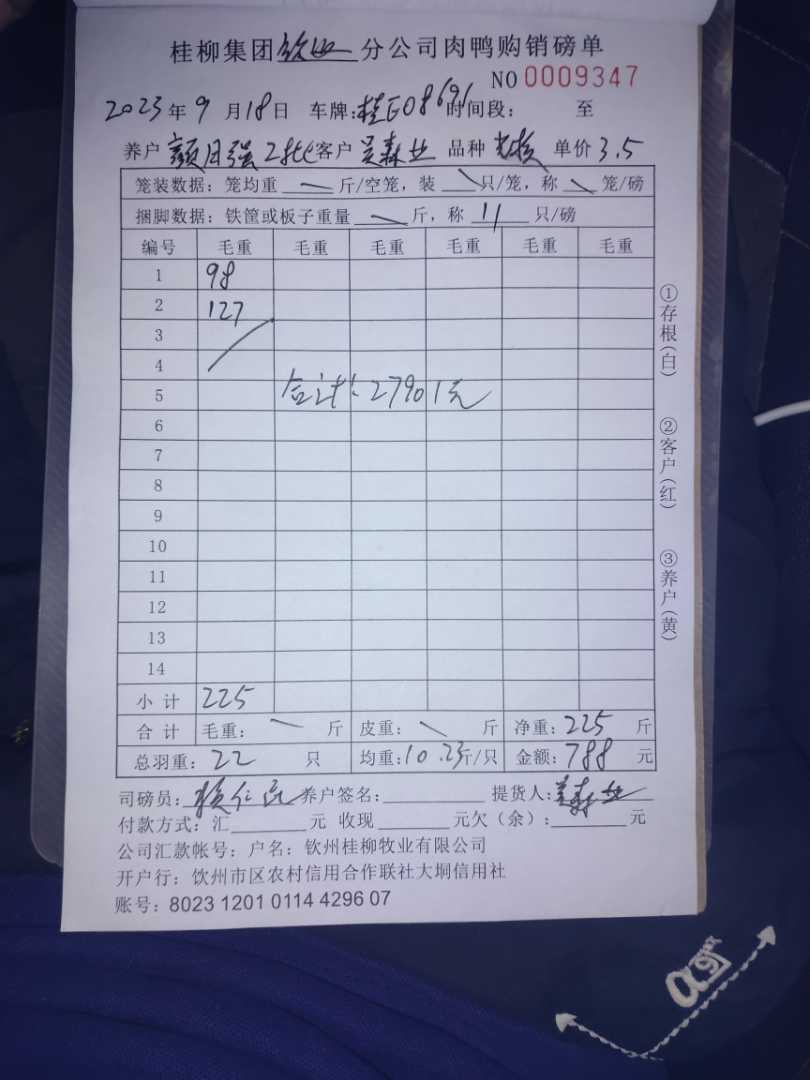 桂柳集团钦州分公司肉鸭购销磅单
NO 0009347
2023年9月18日 车牌:桂E08691 时间段: 至
养户 颜月强 客户 吴森业 品种 单价 3.5
笼装数据: 笼均重 斤/空笼, 装 只/笼, 称 笼/磅
捆脚数据: 铁筐或板子重量 斤, 称 11 只/磅
编号 毛重 毛重 毛重 毛重 毛重 毛重
1 98
2 127
3
4
5 合计: 27901元
6
7
8
9
10
11
12
13
14
小计 225
合计 毛重: 斤 皮重: 斤 净重: 225 斤
总羽重: 22 只 均重: 10.2斤/只 金额: 788 元
司磅员: 养户签名: 提货人: 吴森业
付款方式: 汇 元 收现 元欠(余): 元
公司汇款帐号: 户名: 钦州桂柳牧业有限公司
开户行: 饮州市区农村信用合作联社大垌信用社
账号: 8023 1201 0114 4296 07
①存根(白)
②客户(红)
③养户(黄)